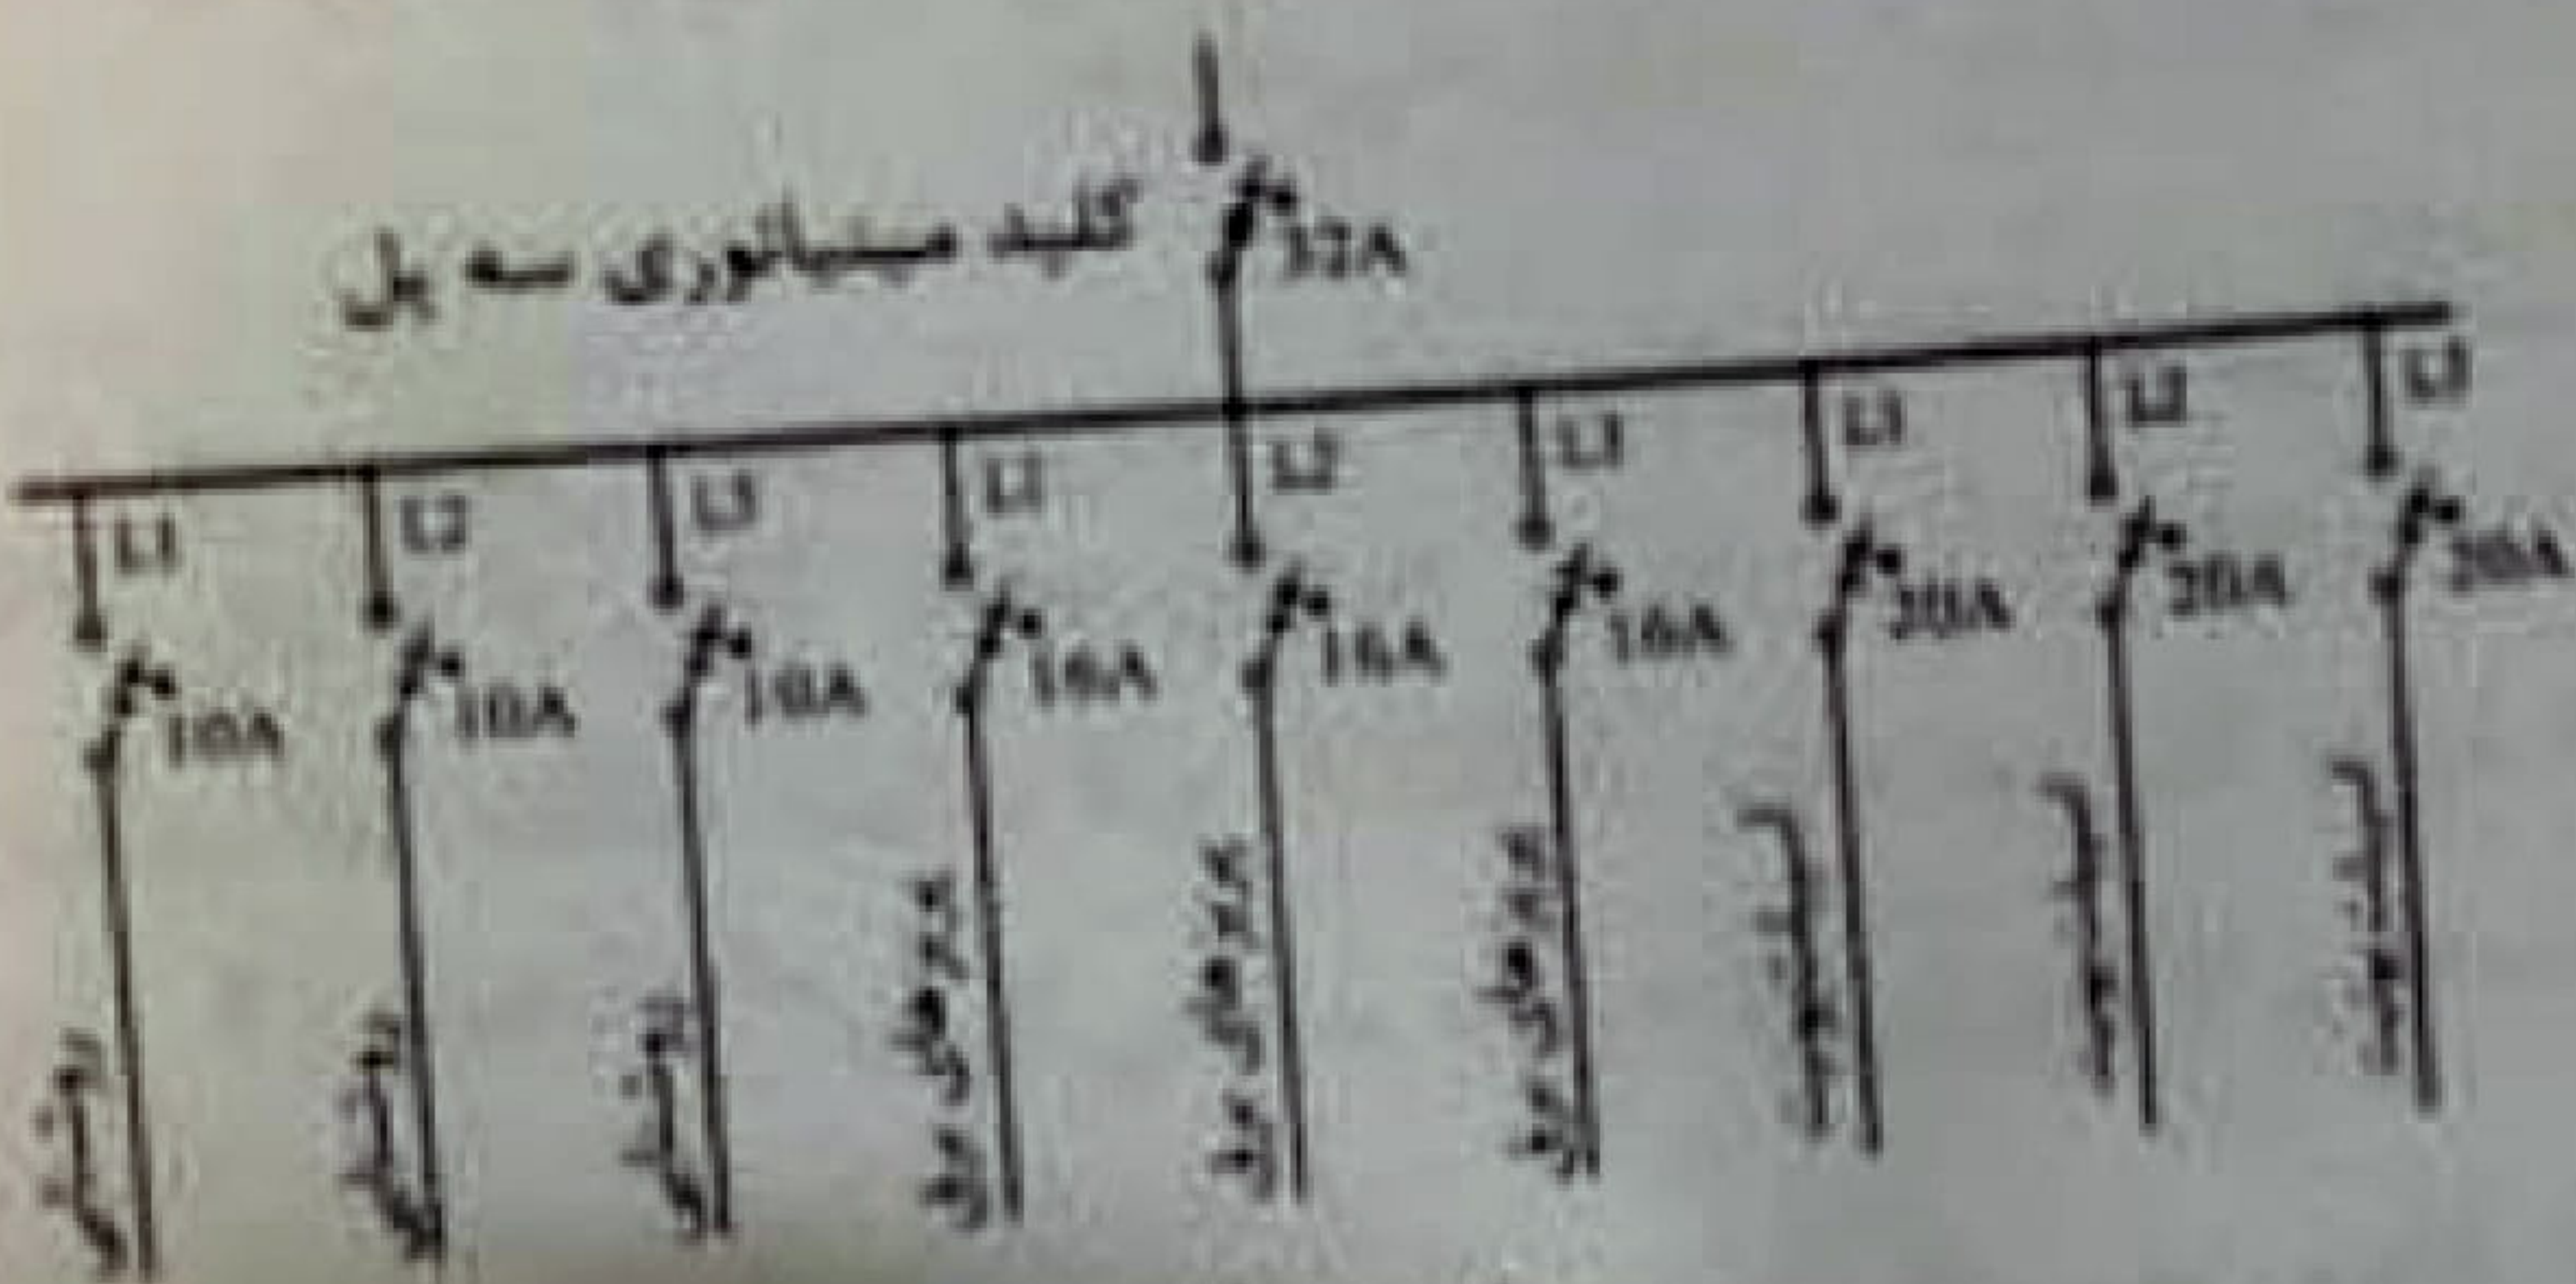 کلید مینیاتوری سه پل
32A
L1
L2
L3
L1
L2
L3
L1
L2
L3
10A
10A
10A
16A
16A
16A
20A
20A
20A
روشنایی
روشنایی
روشنایی
پریزهای برق
پریزهای برق
پریزهای برق